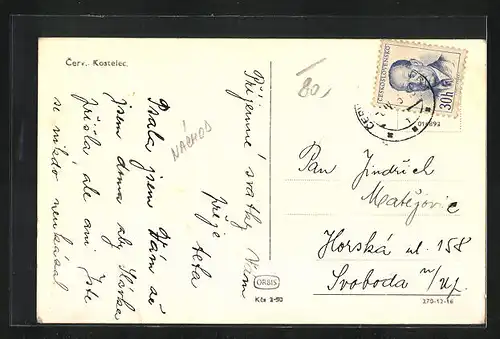 Červ. Kostelec.
Příjemné svátky Vám
přeje teta
Psala jsem Vám že
jsem doma aby Slávka
přišla ale ani jste
se nikdo neukázal
NÁCHOD
80,-
ČESKOSLOVENSKO
30h
Pan Jindřich
Matějovic
Horská ul. 158
Svoboda n/Úp.
ORBIS
Kčs 1·50
270-12-16